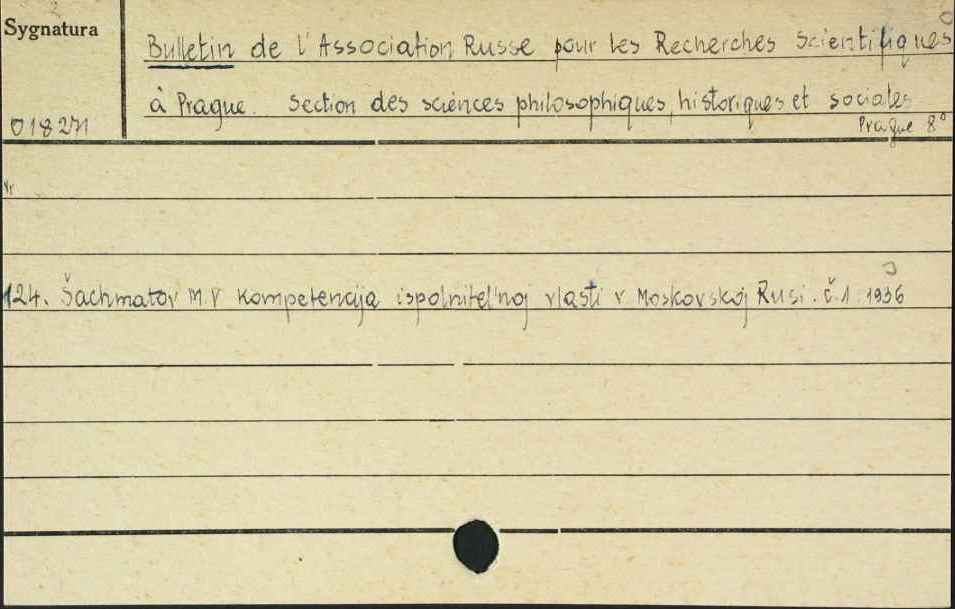 Sygnatura
Bulletin de l'Association Russe pour les Recherches Scientifiques
à Prague. Section des sciences philosophiques, historiques et sociales
Prague 8°
Nr
124. Šachmatov M.V Kompetencija ispolnitel'noj vlasti v Moskovskoj Rusi. č.1. 1936